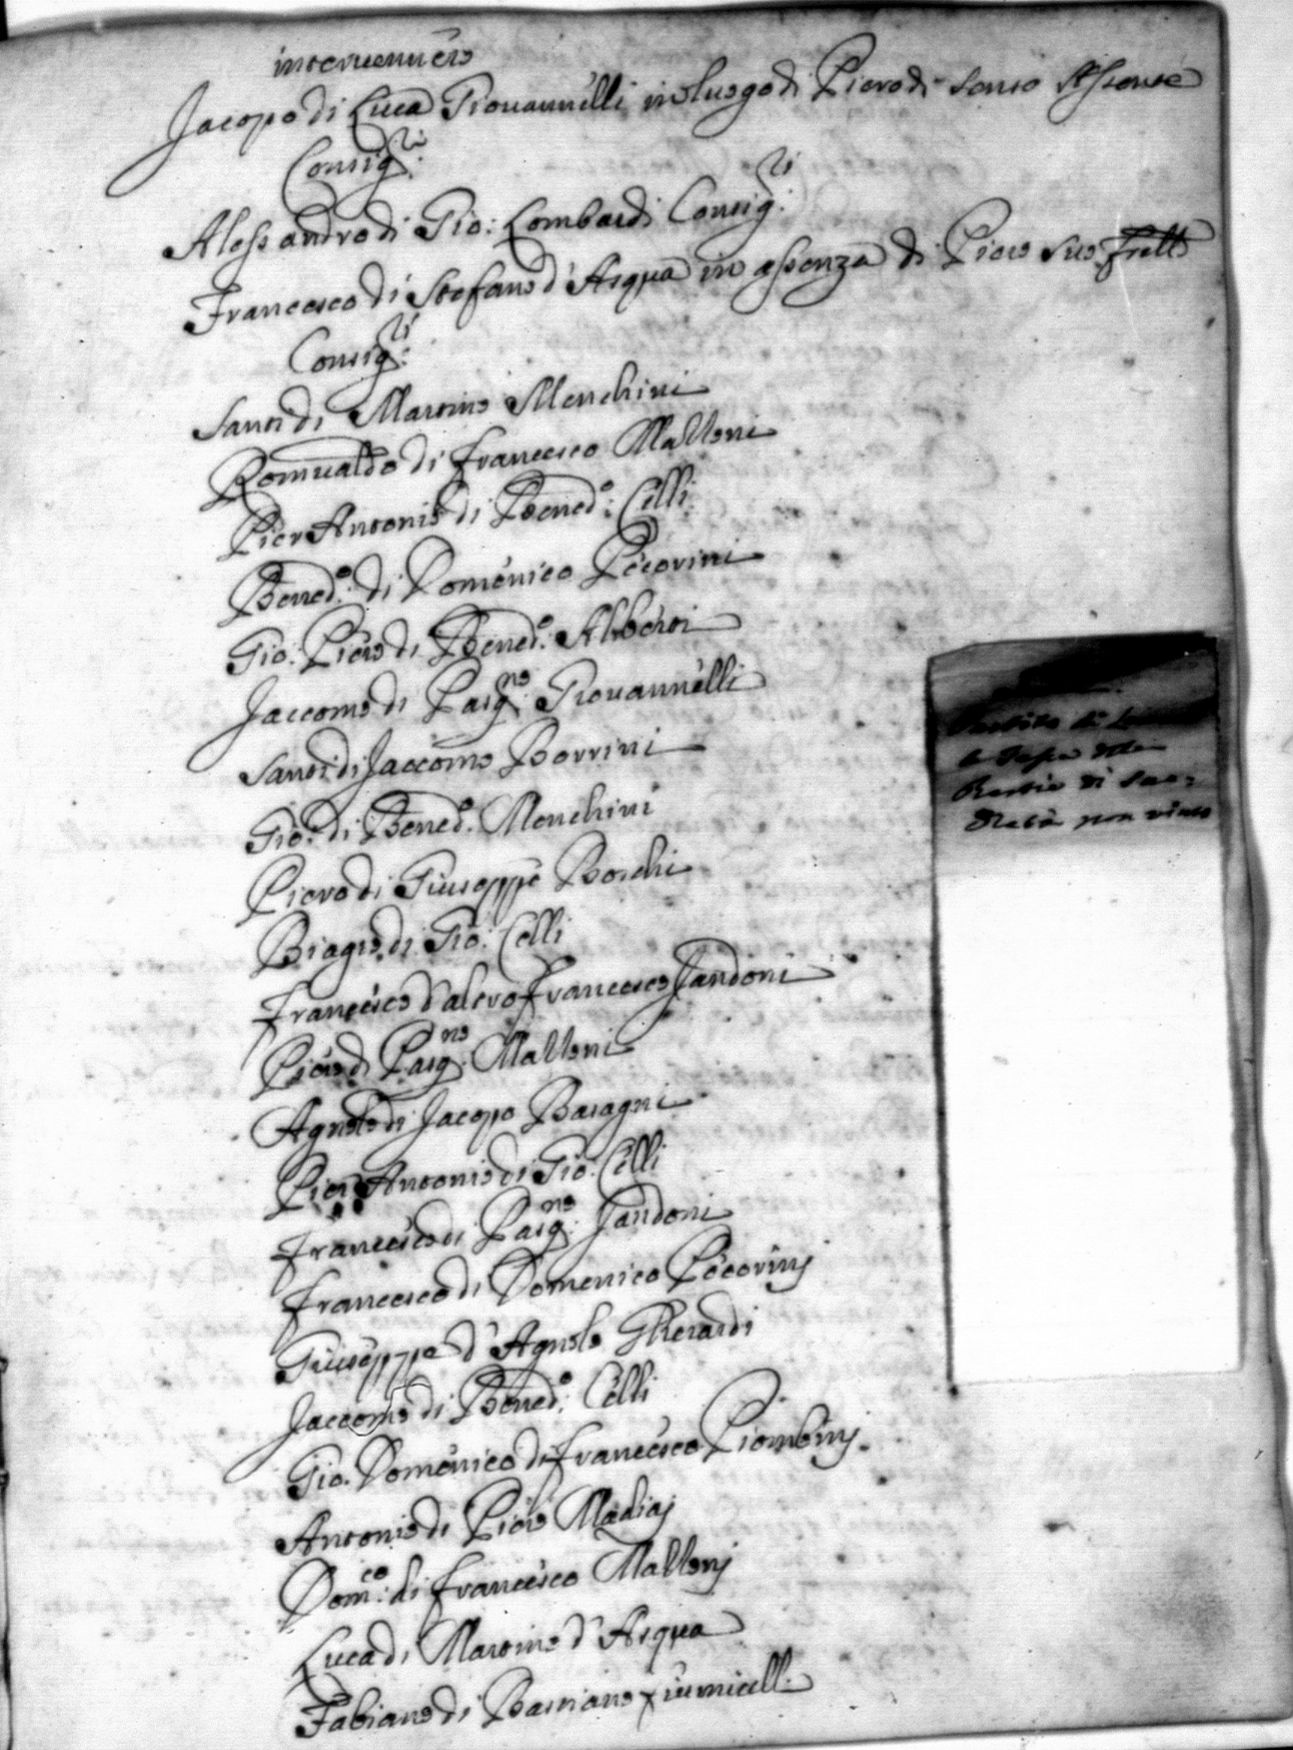 intervennero
Jacopo di Luca Giovannelli in luogo di Piero di Santo assente
Consig:li
Alessandro di Gio: Lombardi Consig:li
Francesco di Stefano d'Acqua in assenza di Piero suo fratto
Consig:li
Santi di Martino Menchini
Romualdo di Francesco Malloni
Pier Antonio di Bened:o Celli
Bened:o di Domenico Pecorini
Gio: Piero di Bened:o Alberti
Jaccomo di Pasq:no Giovannelli
Santi di Jaccomo Borrini
Gio: di Bened:o Menchini
Piero di Giuseppe Boschi
Biagio di Gio: Celli
Francesco d'altro Francesco Jandoni
Piero di Pasq:no Malloni
Agnolo di Jacopo Basagni
Pier Antonio di Gio: Celli
Francesco di Pasq:no Jandoni
Francesco di Domenico Pecorinj
Giuseppe d'Agnolo Gherardi
Jaccomo di Bened:o Celli
Gio. Domenico di Francesco Piombinj.
Antonio di Piero Madiaj
Dom:co di Francesco Mallonj
Luca di Martino d'Acqua
Fabiano di Bastiano
Partito di
la Tassa della
Bestie di
non vinto